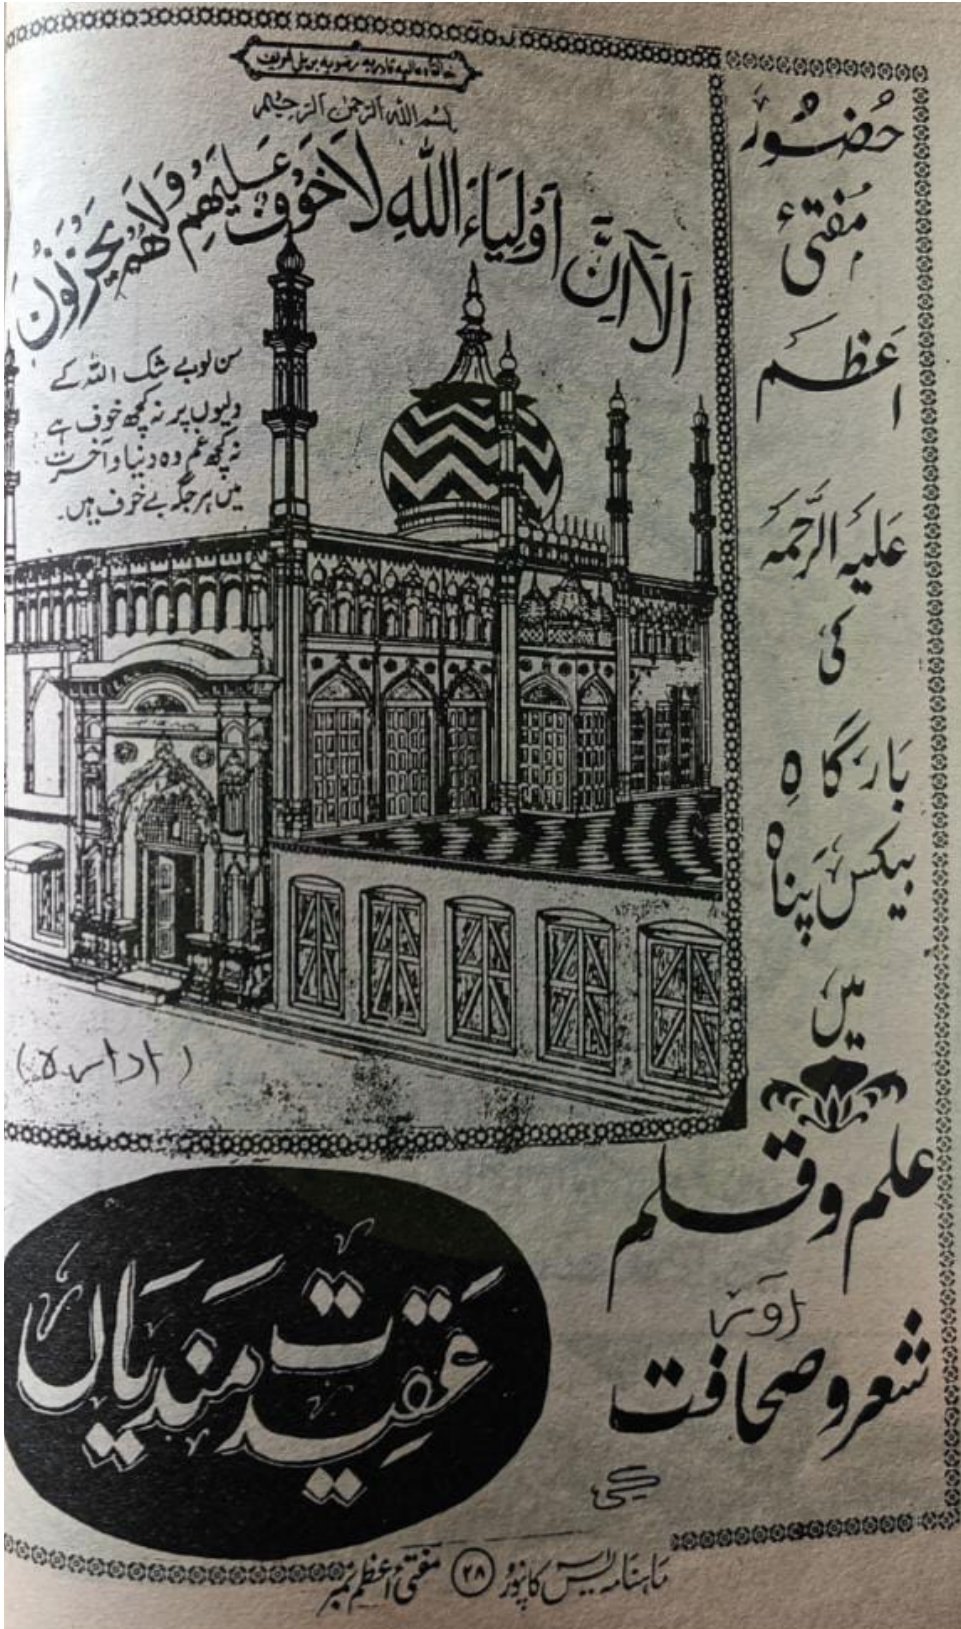 خانقاہ عالیہ قادریہ رضویہ بریلی شریف
بسم اللہ الرحمن الرحیم
اَلَا اِنَّ اَوْلِیَاءَ اللّٰهِ لَا خَوْفٌ عَلَیْهِمْ وَلَا هُمْ یَحْزَنُوْنَ
سن لو بے شک اللہ کے
ولیوں پر نہ کچھ خوف ہے
نہ کچھ غم وہ دنیا و آخرت
میں ہر جگہ بے خوف ہیں۔
حُضُور
مُفتیٔ
اَعظَم
عَلَیہ الرَّحمَہ
کی
بَارگاہِ
بیکس پَناہ
میں
(ادارہ)
علم و قلم
اور
شعر و صحافت
کی
عقیدت مندیاں
ماہنامہ کانپور ۲۸ مفتیٔ اعظم نمبر